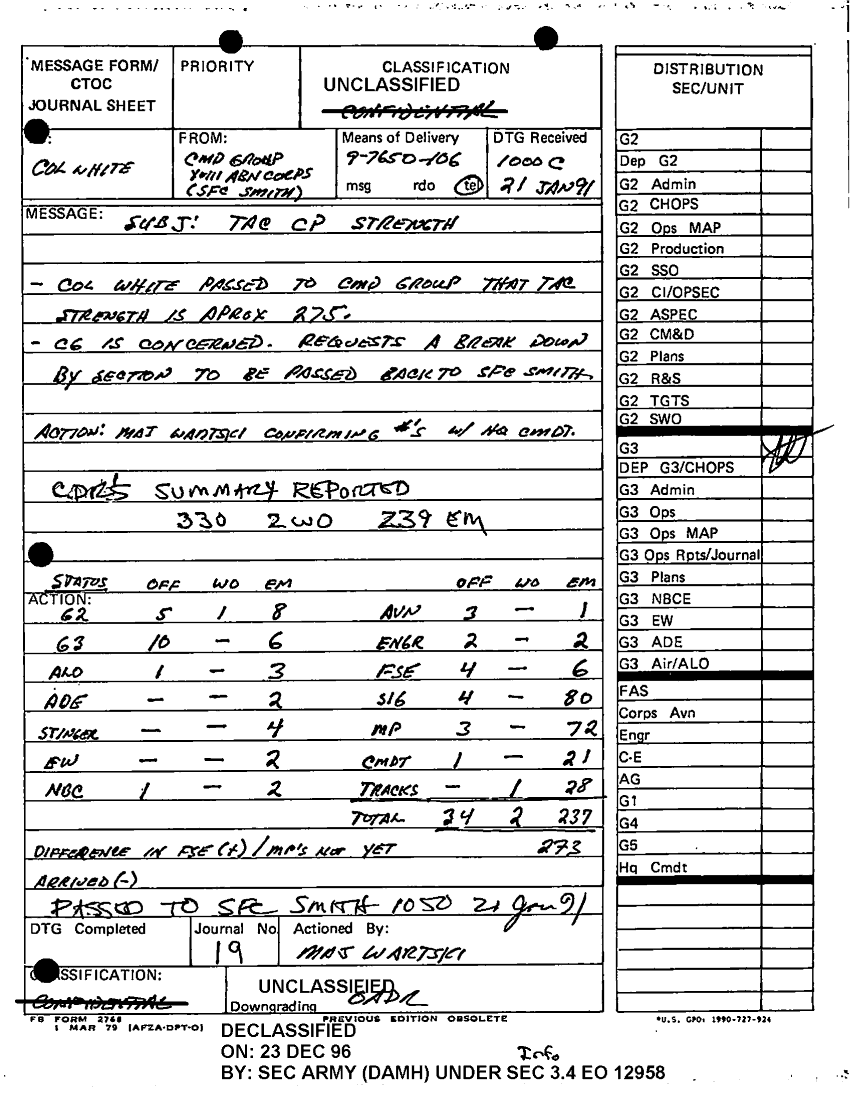 MESSAGE FORM/ CTOC JOURNAL SHEET
PRIORITY
CLASSIFICATION
UNCLASSIFIED
CONFIDENTIAL
COL WHITE
FROM:
CMD GROUP
XVIII ABN CORPS
(SFC SMITH)
Means of Delivery
9-7650-106
msg rdo tel
DTG Received
1000 C
21 JAN 91
MESSAGE: SUBJ: TAC CP STRENGTH
- COL WHITE PASSED TO CMD GROUP THAT TAC
STRENGTH IS APROX 275.
- CG IS CONCERNED. REQUESTS A BREAK DOWN
BY SECTION TO BE PASSED BACK TO SFC SMITH.
ACTION: MAJ WARTSKI CONFIRMING #'S W/ HQ CMDT.
CDR'S SUMMARY REPORTED
330 2WO 239 EM
STATUS OFF WO EM OFF WO EM
ACTION:
G2 5 1 8 AVN 3 — 1
G3 10 — 6 ENGR 2 — 2
ALO 1 — 3 FSE 4 — 6
ADE — — 2 SIG 4 — 80
STINGER — — 4 MP 3 — 72
EW — — 2 CMDT 1 — 21
NBC 1 — 2 TRACKS — 1 28
TOTAL 34 2 237
DIFFERENCE IN FSE (+) / MP'S NOT YET 273
ARRIVED (-)
PASSED TO SFC SMITH 1050 21 Jan 91
DTG Completed
Journal No.
19
Actioned By:
MAJ WARTSKI
CLASSIFICATION:
CONFIDENTIAL
UNCLASSIFIED
Downgrading OADR
FB FORM 2768
1 MAR 79 (AFZA-DPT-O)
PREVIOUS EDITION OBSOLETE
DECLASSIFIED
ON: 23 DEC 96
Info
BY: SEC ARMY (DAMH) UNDER SEC 3.4 EO 12958
DISTRIBUTION
SEC/UNIT
G2
Dep G2
G2 Admin
G2 CHOPS
G2 Ops MAP
G2 Production
G2 SSO
G2 CI/OPSEC
G2 ASPEC
G2 CM&D
G2 Plans
G2 R&S
G2 TGTS
G2 SWO
G3
DEP G3/CHOPS
G3 Admin
G3 Ops
G3 Ops MAP
G3 Ops Rpts/Journal
G3 Plans
G3 NBCE
G3 EW
G3 ADE
G3 Air/ALO
FAS
Corps Avn
Engr
C-E
AG
G1
G4
G5
Hq Cmdt
*U.S. GPO: 1990-727-924